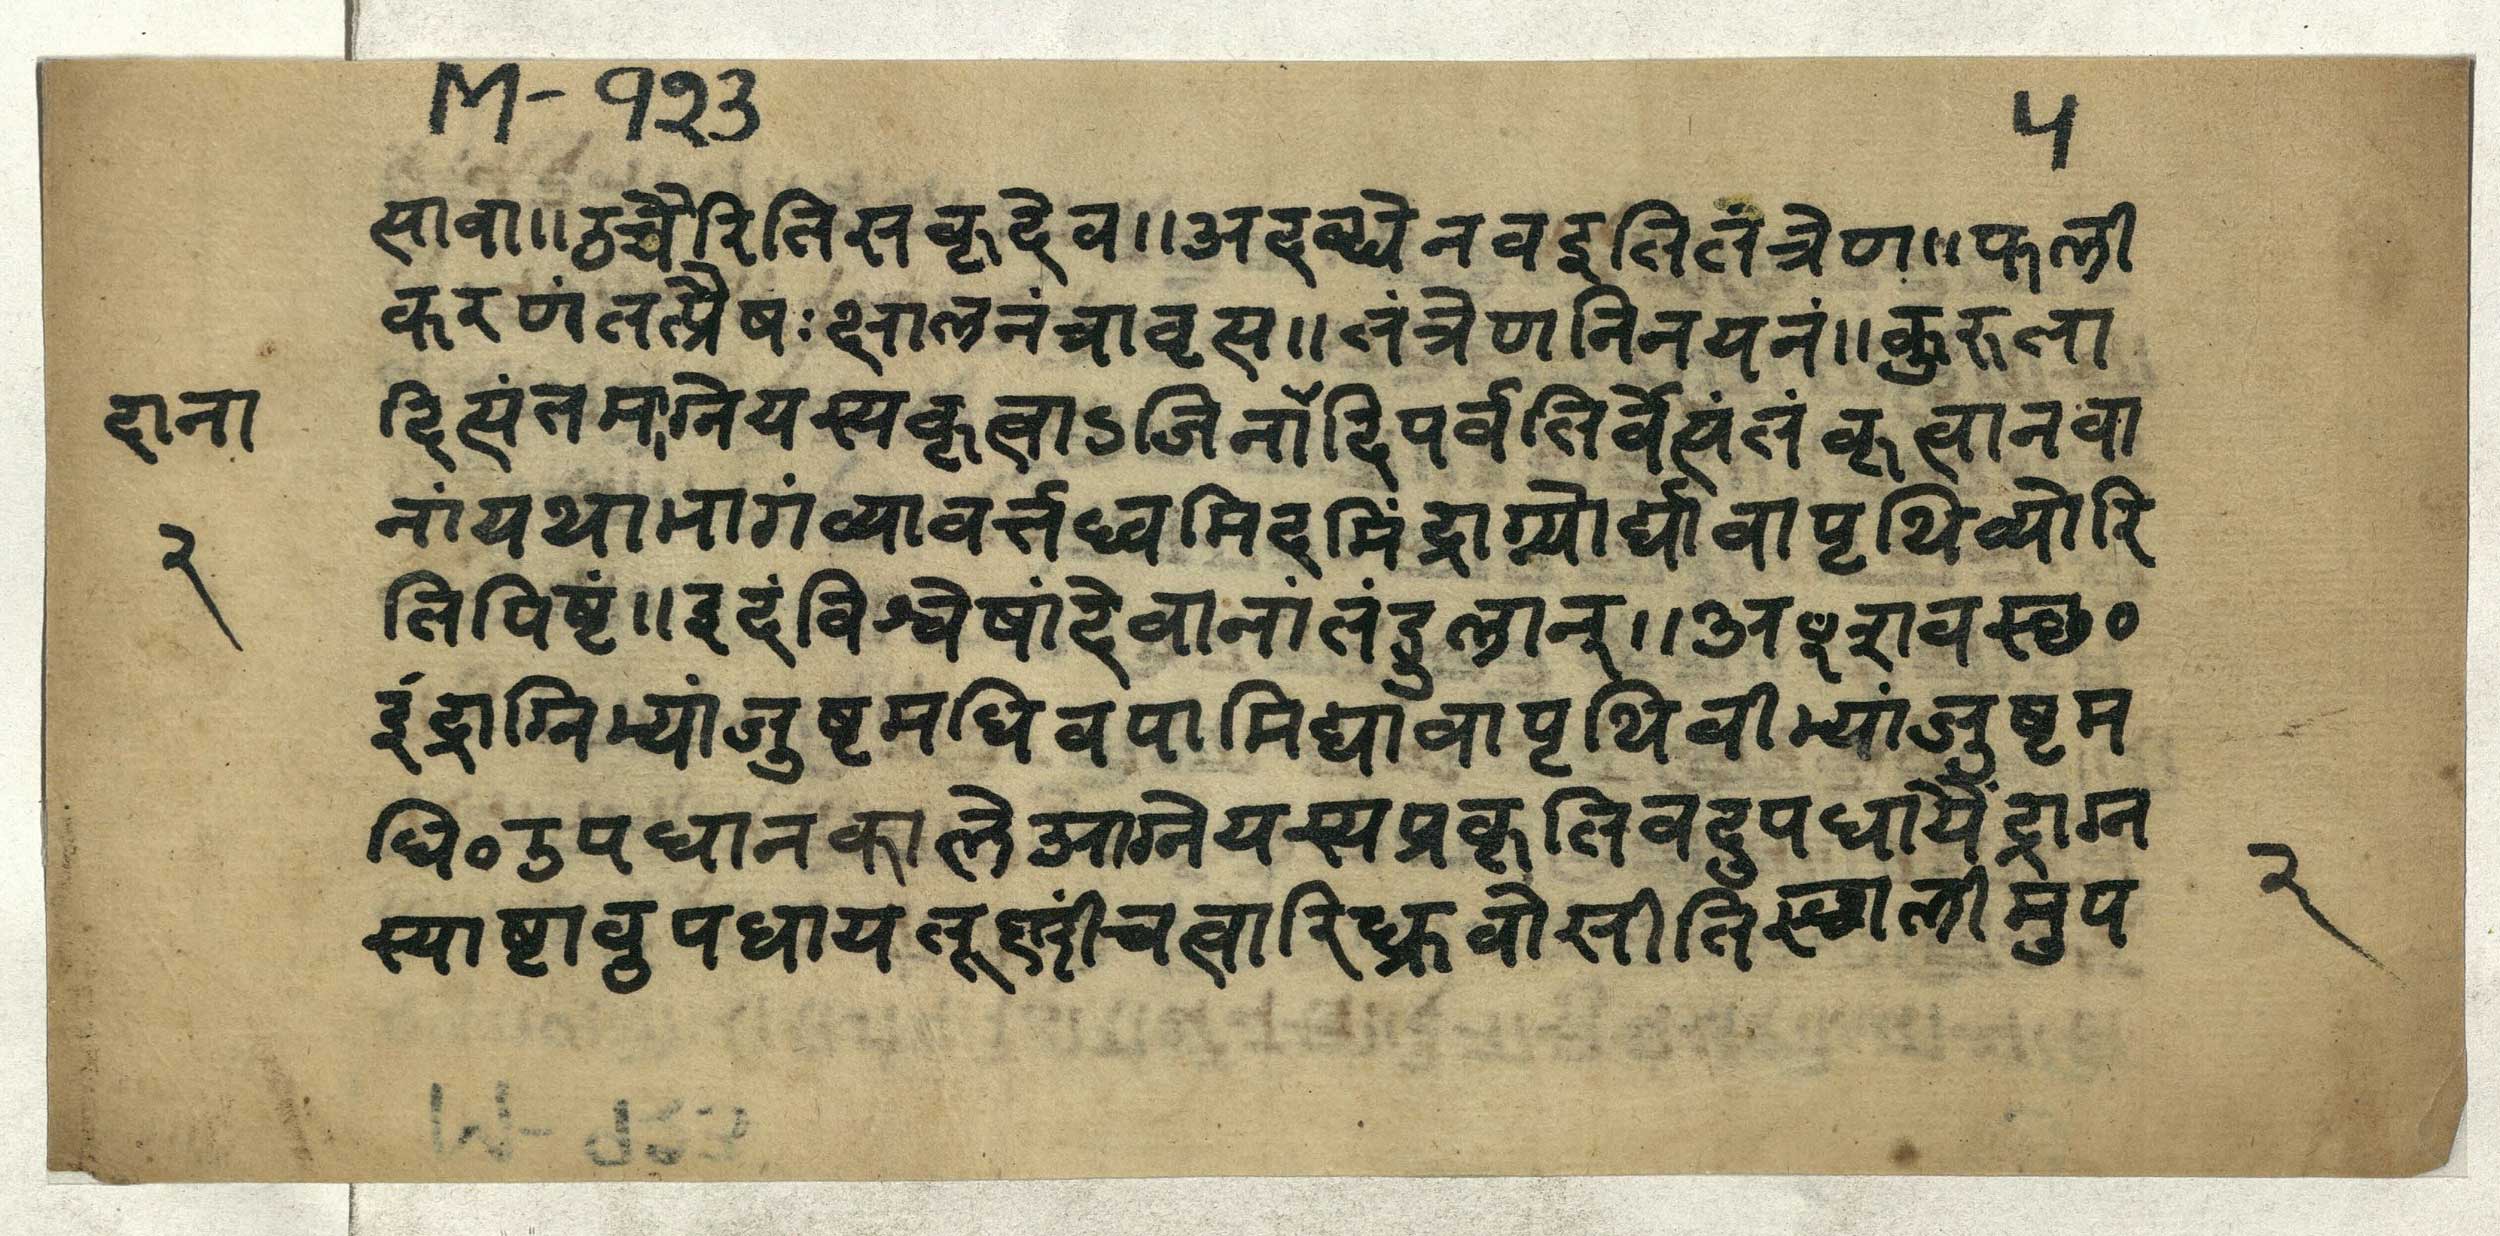 M-१२३
५
सावा॥ठच्चैरितिसकृदेव॥अदब्धेनवइतितंत्रेण॥फली
करणंतत्प्रैषःक्षालनंचावृस॥तंत्रेणनिनयनं॥कुरुता
दाना
दित्यंतमाग्नेयस्यकृत्वाऽजिनादिपर्वतिर्वेत्यंतंकृत्वानवा
नांयथाभागंव्यावर्त्तध्वमिदमिंद्राग्न्योर्द्यावापृथिव्योरि
२
तिपिष्टं॥इदंविश्वेषांदेवानांतंदुलान्॥अꣳशवस्छ०
इंद्राग्निभ्यांजुष्टमधिवपामिद्यावापृथिवीभ्यांजुष्टम
धि०उपधानकालेआग्नेयस्यप्रकृतिवदुपधायैंद्राग्न
२
स्याष्टावुपधायतूष्णींचत्वारिध्रुवोसीतिस्थालीमुप